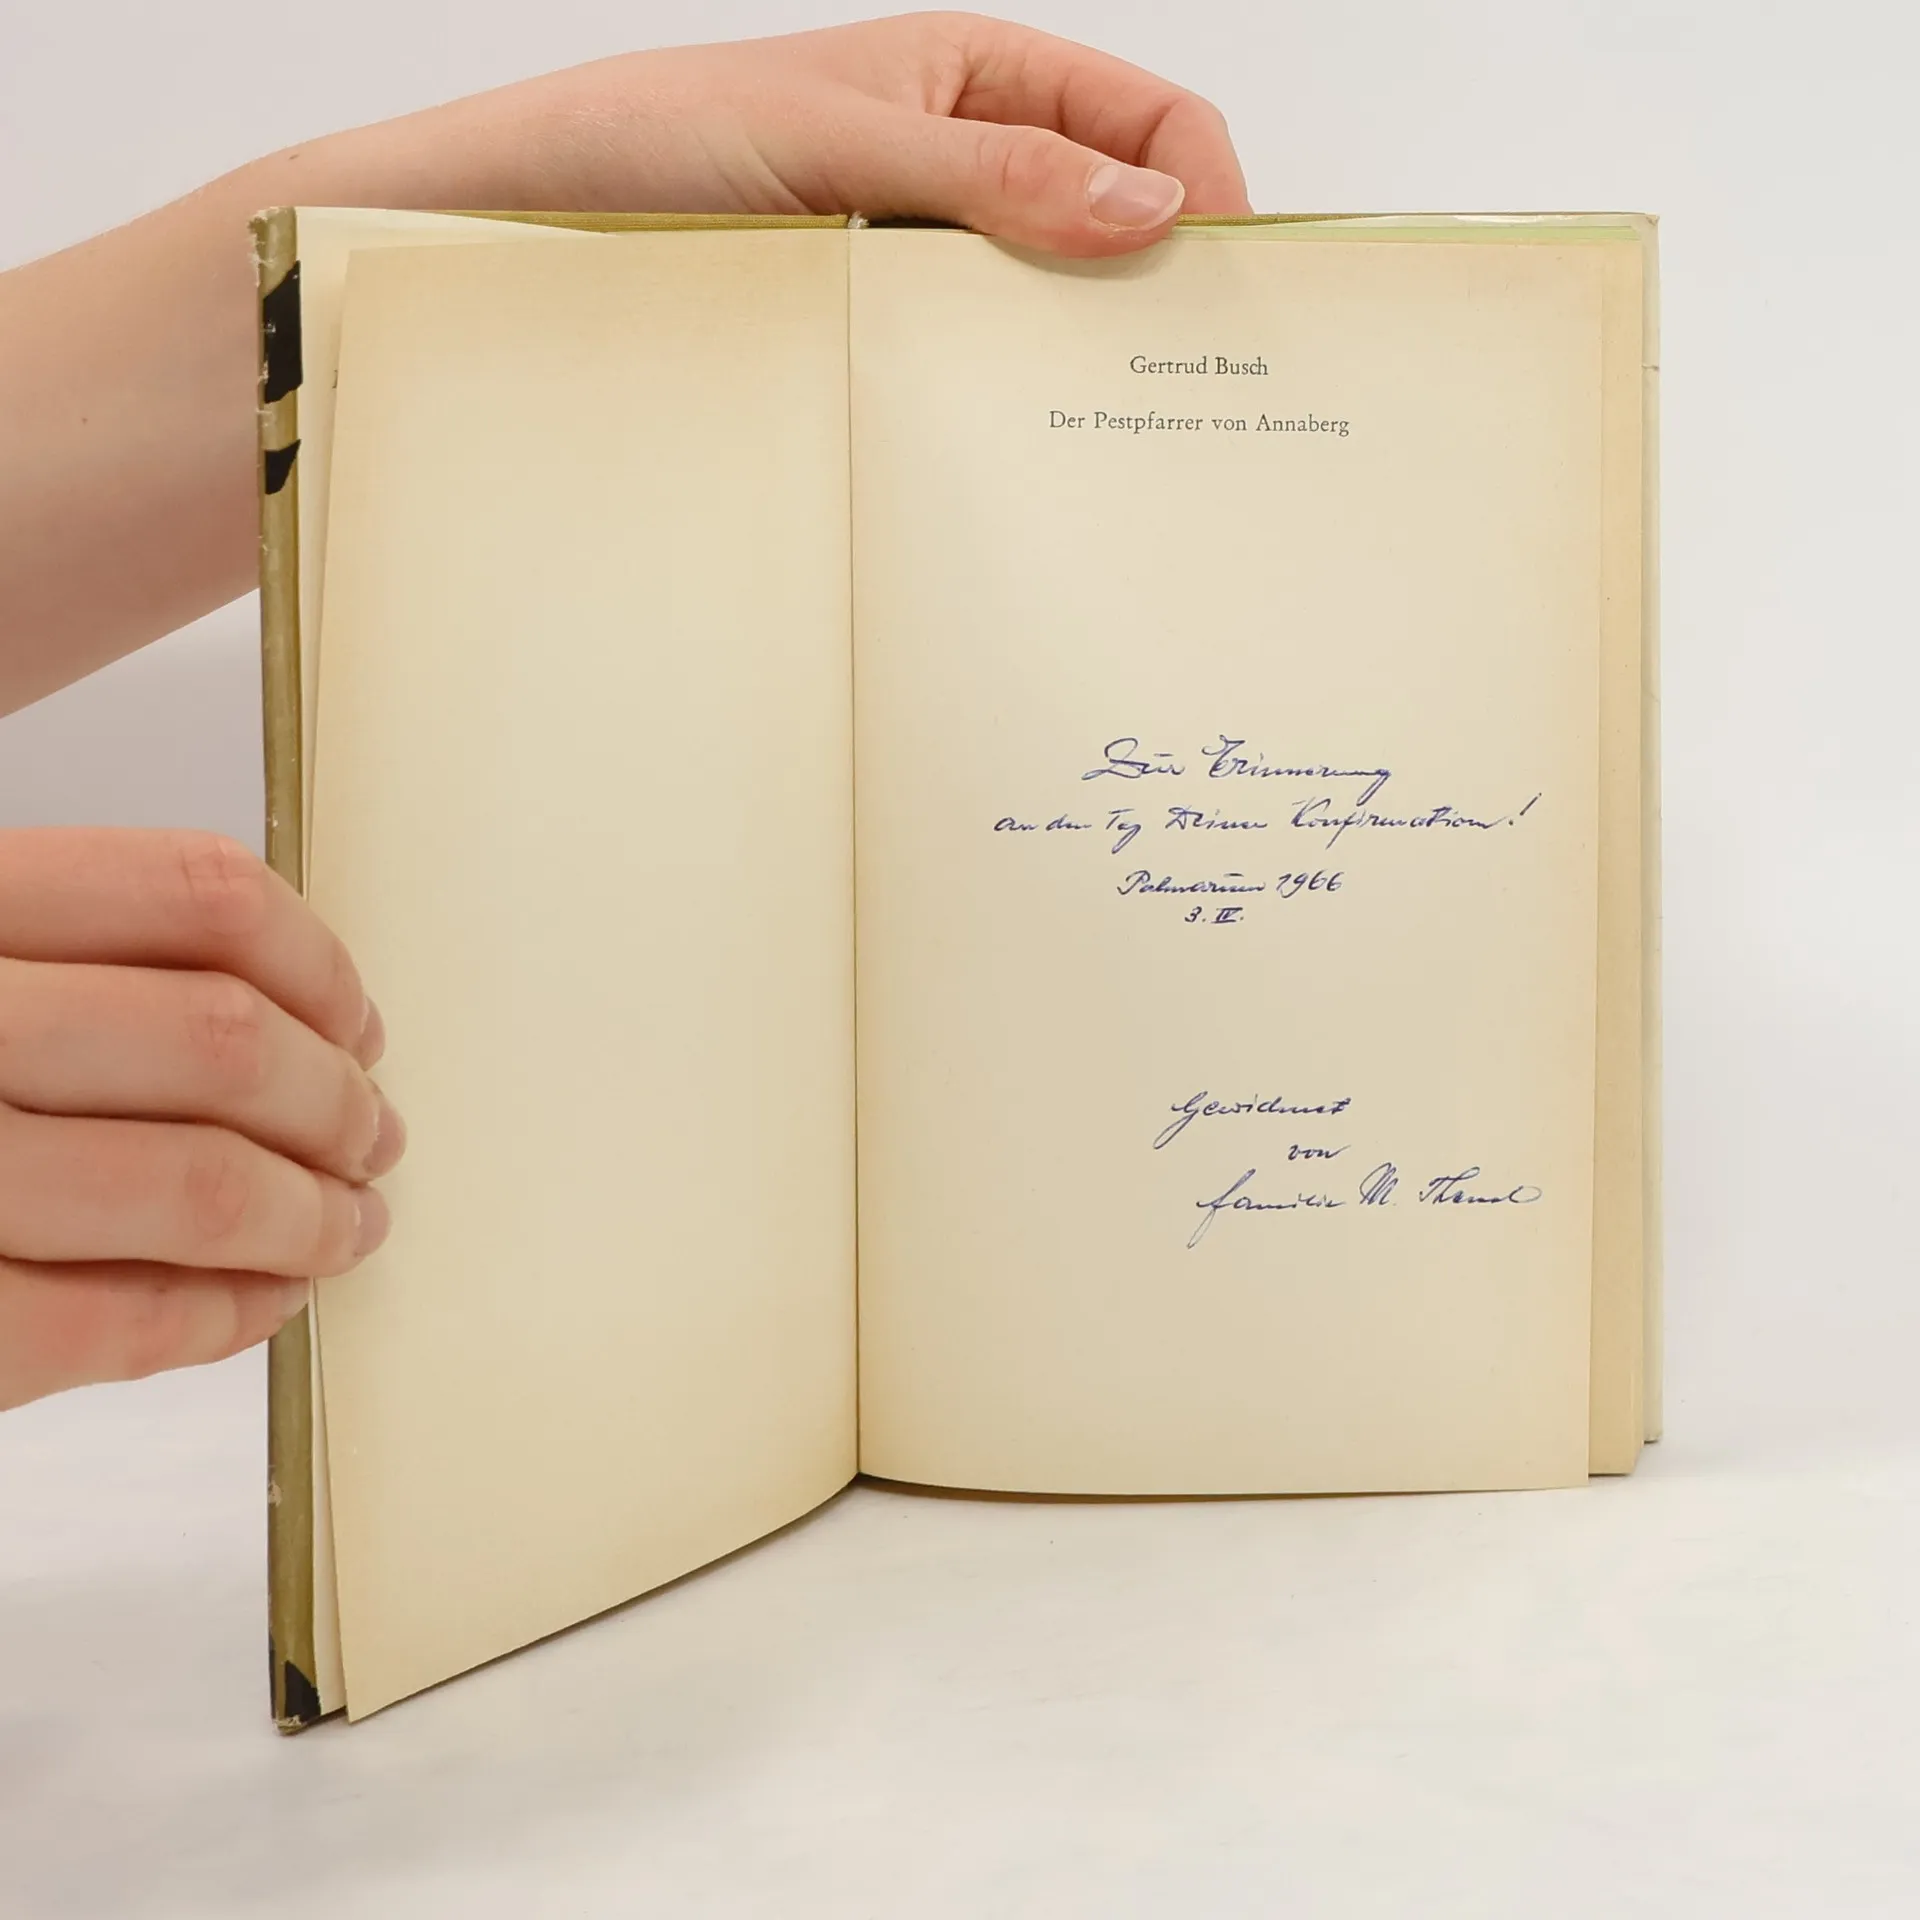 Gertrud Busch
Der Pestpfarrer von Annaberg
Zur Erinnerung
an den Tag Deiner Konfirmation!
Palmarum 1966
3. IV.
Gewidmet
von
Familie M.